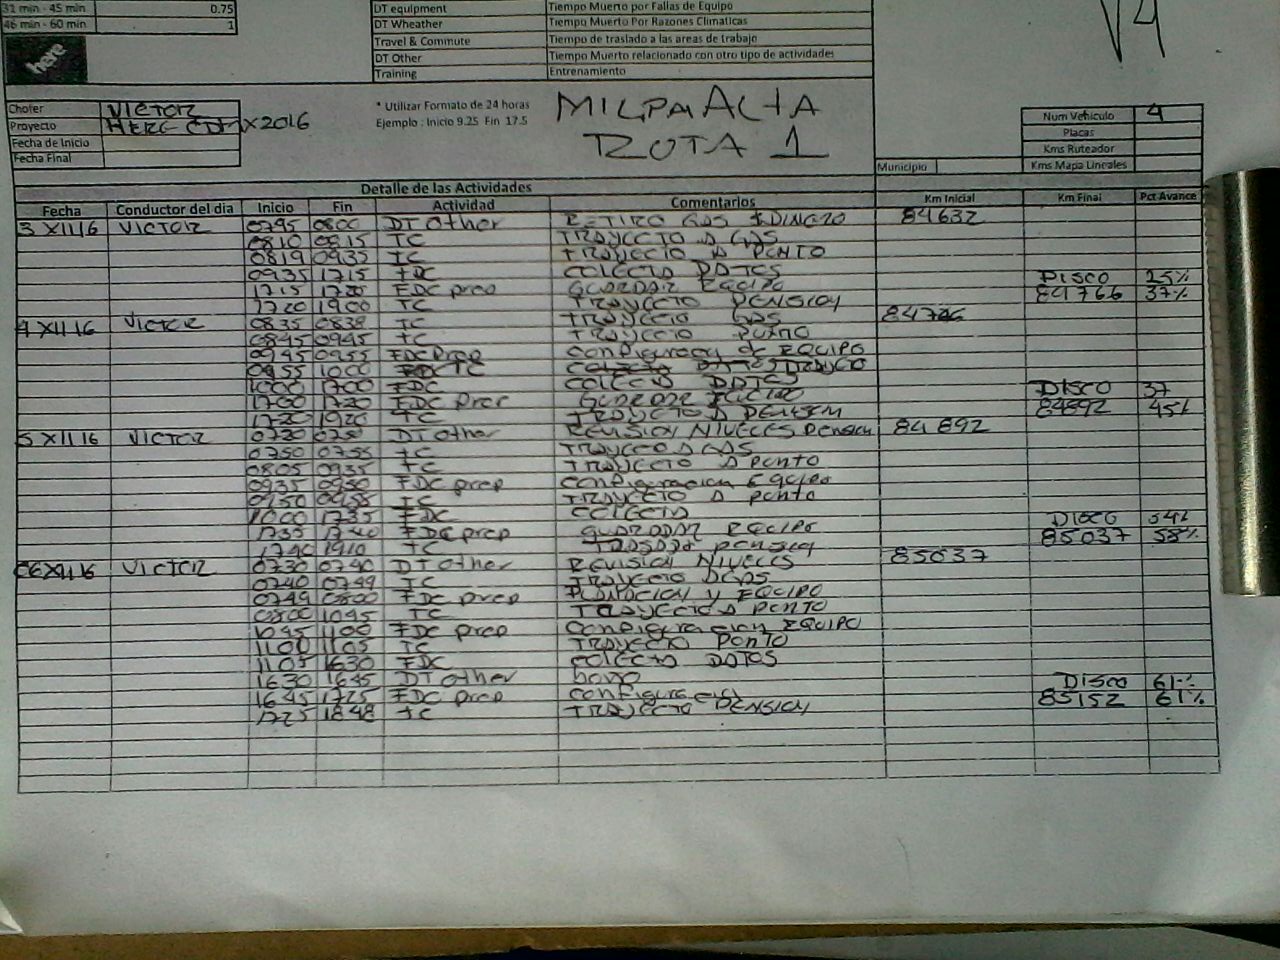 31 min - 45 min 0.75
46 min - 60 min 1
DT equipment Tiempo Muerto por Fallas de Equipo
DT Wheather Tiempo Muerto Por Razones Climaticas
Travel & Commute Tiempo de traslado a las areas de trabajo
DT Other Tiempo Muerto relacionado con otro tipo de actividades
Training Entrenamiento
V4
here
Chofer VICTOR
Proyecto HERE CDMX 2016
Fecha de Inicio
Fecha Final
* Utilizar Formato de 24 horas
Ejemplo : Inicio 9.25 Fin 17.5
MILPA ALTA
RUTA 1
Num Vehiculo 4
Placas
Kms Ruteador
Municipio Kms Mapa Lineales
Detalle de las Actividades
Fecha Conductor del dia Inicio Fin Actividad Comentarios Km Inicial Km Final Pct Avance
3 XII 16 VICTOR 0745 0800 DT other RETIRO GAS DINERO 84632
0810 0815 TC TRAYECTO A GAS
0819 0935 TC TRAYECTO A PUNTO
0935 1715 FDC COLECTA DATOS DISCO 25%
1715 1720 FDC prep GUARDAR EQUIPO 84766 37%
1720 1900 TC TRAYECTO PENSION
4 XII 16 VICTOR 0835 0838 TC TRAYECTO GAS
0845 0945 TC TRAYECTO PUNTO
0945 0955 FDC Prep configuracion de EQUIPO
0955 1000 TC TRAYECTO
1000 1700 FDC COLECTA DATOS DISCO 37
1700 1720 FDC Prep GUARDAR EQUIPO 84892 45%
1720 1920 TC TRAYECTO A PENSION
5 XII 16 VICTOR 0720 0750 DT other REVISION NIVELES Pension 84 892
0750 0755 TC TRAYECTO A GAS
0805 0935 TC TRAYECTO A PUNTO
0935 0950 FDC prep configuracion Equipo
0950 0958 TC TRAYECTO A punto
1000 1735 FDC COLECTA DISCO 54%
1735 1740 FDC prep GUARDAR EQUIPO 85037 58%
1740 1910 TC pension
06 XII 16 VICTOR 0730 0740 DT other REVISION NIVELES 85037
0740 0749 TC TRAYECTO A GAS
0749 0800 FDC prep Y EQUIPO
0800 1045 TC TRAYECTO A PUNTO
1045 1100 FDC prep configuracion EQUIPO
1100 1105 TC TRAYECTO PUNTO
1105 1630 FDC COLECTA DATOS
1630 1645 DT other baño DISCO 61%
1645 1725 FDC prep configuracion 85152 61%
1725 1848 TC TRAYECTO PENSION